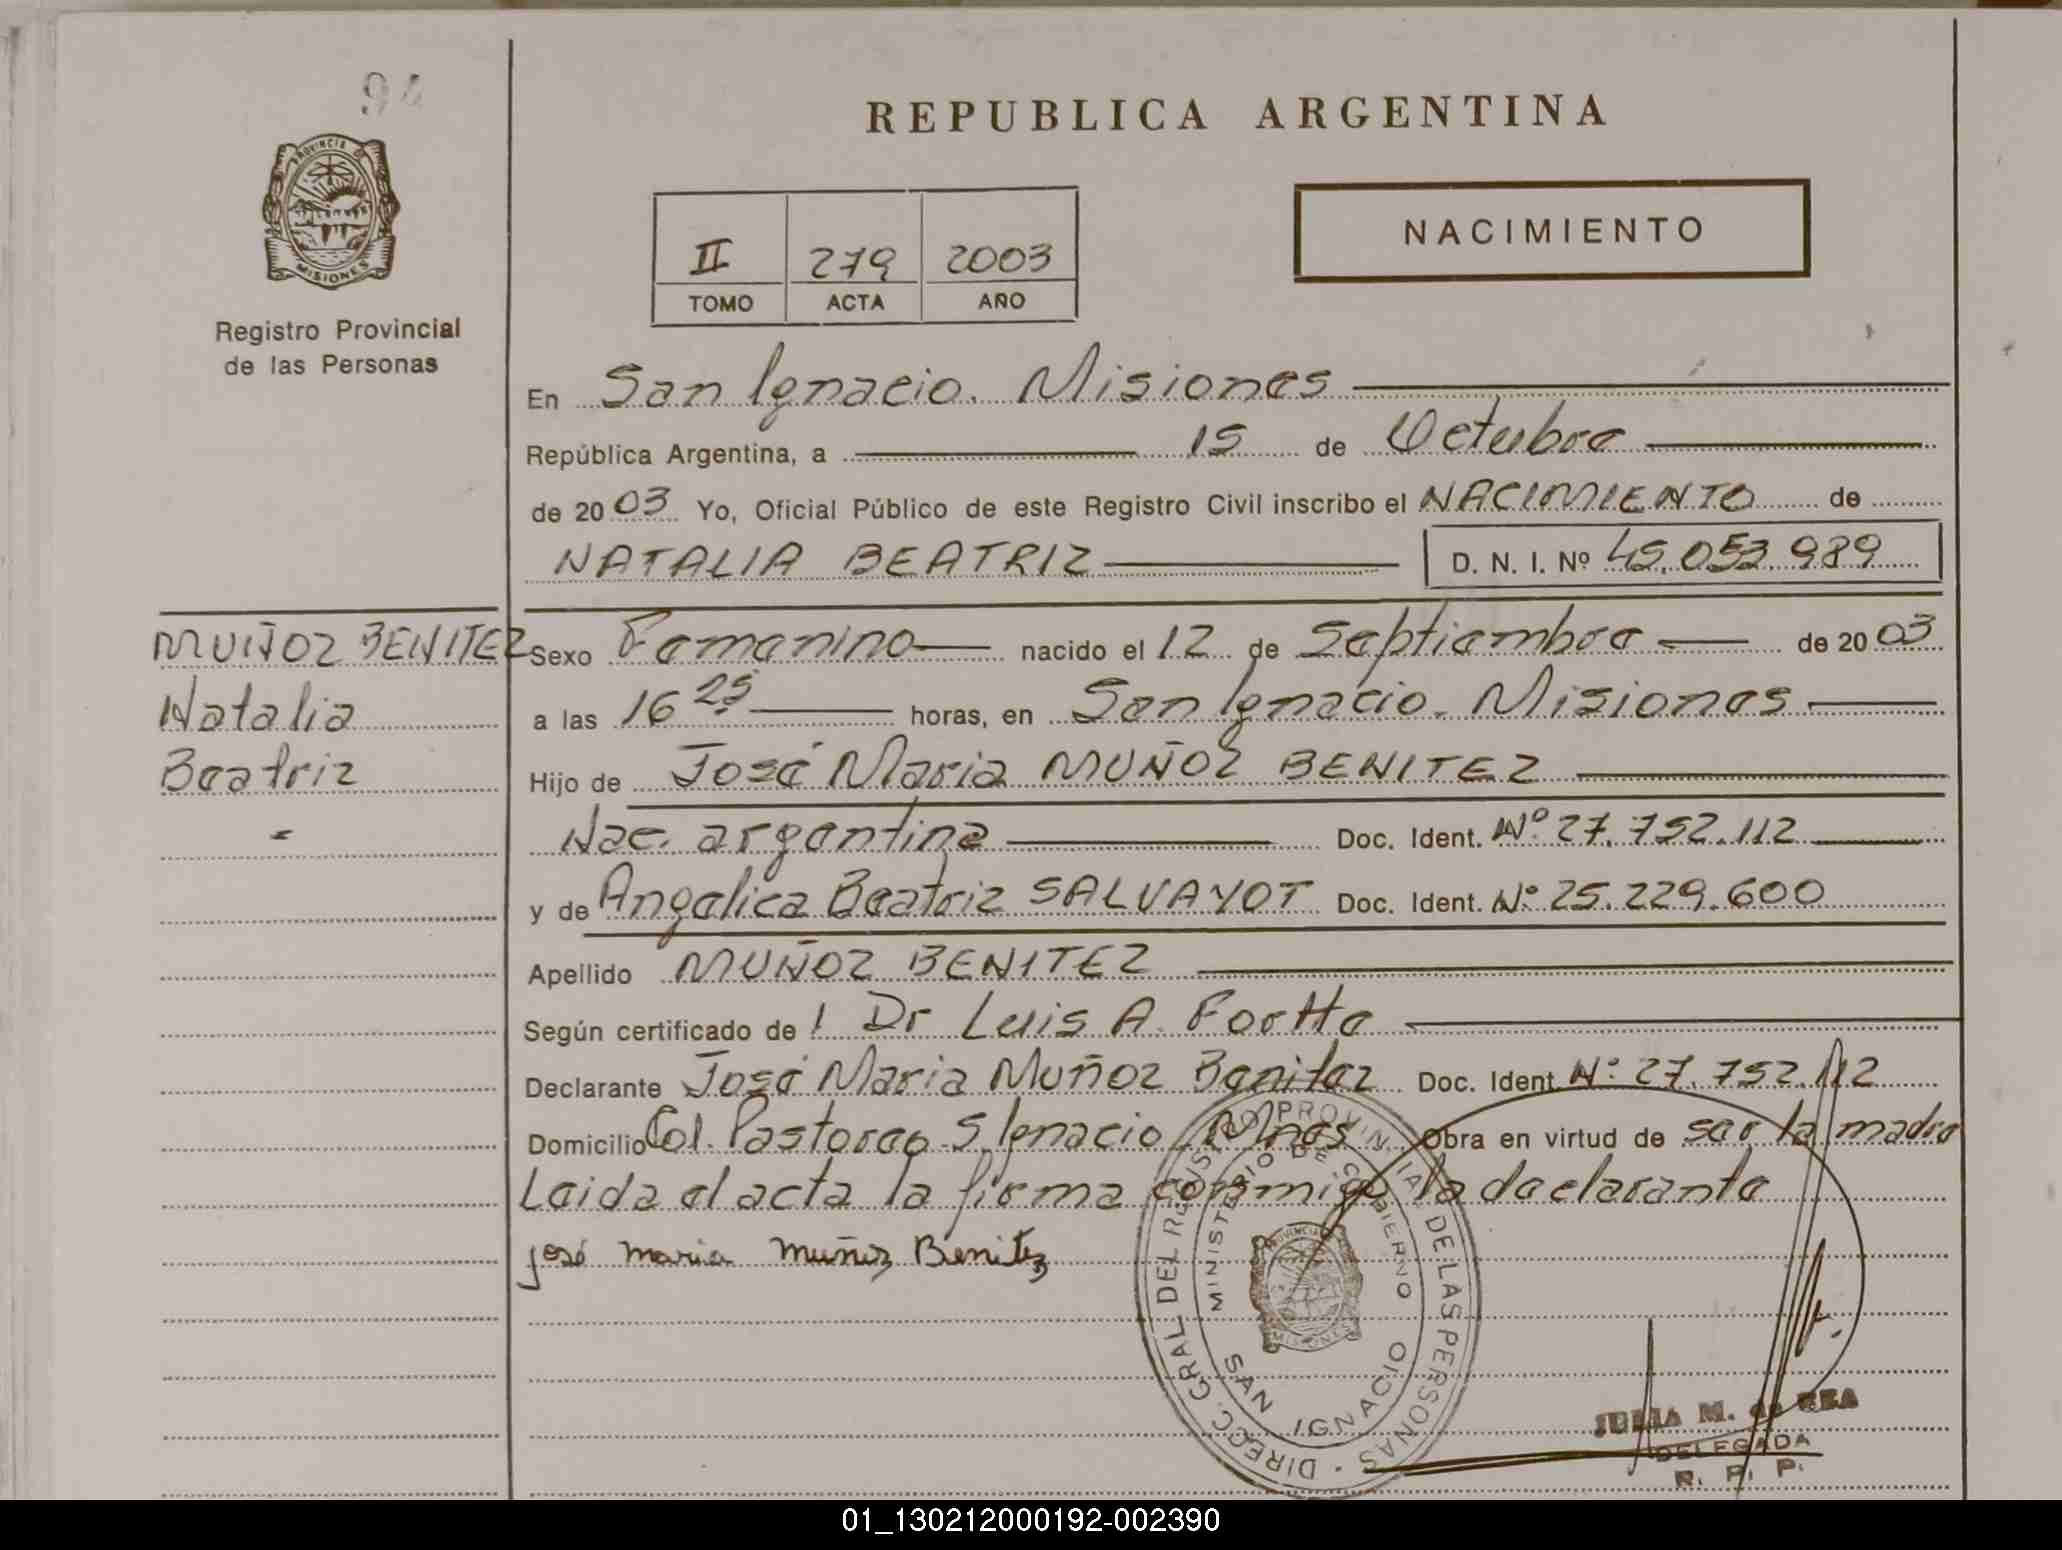 94
REPUBLICA ARGENTINA
PROVINCIA DE
MISIONES
Registro Provincial
de las Personas
II 279 2003
TOMO ACTA AÑO
NACIMIENTO
En San Ignacio. Misiones
República Argentina, a 15 de Octubre
de 2003 Yo, Oficial Público de este Registro Civil inscribo el NACIMIENTO de
NATALIA BEATRIZ D. N. I. Nº 45.053.989
MUÑOZ BENITEZ
Natalia
Beatriz
Sexo Femenino nacido el 12 de Septiembre de 2003
a las 16 25 horas, en San Ignacio. Misiones
Hijo de José Maria MUÑOZ BENITEZ
Nac. argentina Doc. Ident. Nº 27.752.112
y de Angelica Beatriz SALVAYOT Doc. Ident. Nº 25.229.600
Apellido MUÑOZ BENITEZ
Según certificado de l Dr Luis A.
Declarante José Maria Muñoz Benitez Doc. Ident Nº 27.752.112
Domicilio Col. Pastoreo S. Ignacio Mnes Obra en virtud de ser la madre
Leida el acta la firma conmigo la declarante
José maria muñoz Benitez
DIRECC. GRAL. DEL REGISTRO PROVINCIAL DE LAS PERSONAS
MINISTERIO DE GOBIERNO
SAN IGNACIO
JULIA M. de REA
DELEGADA
R. P. P.
01_130212000192-002390